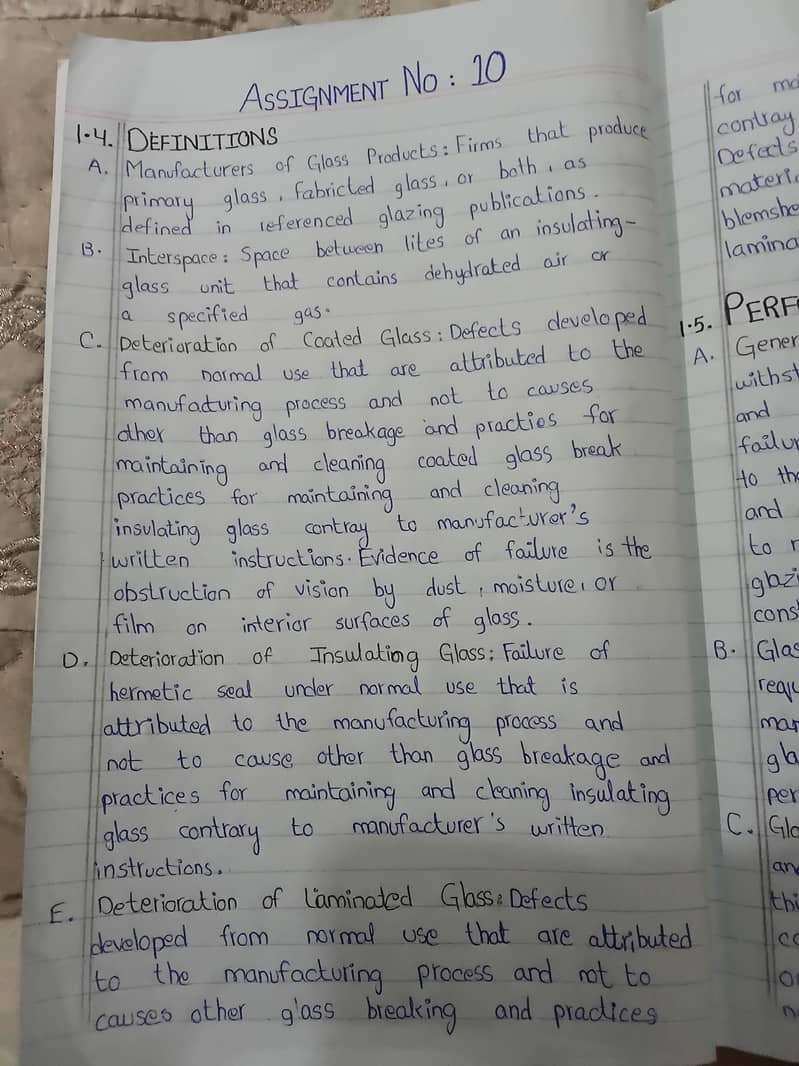 ASSIGNMENT No : 10
1.4. DEFINITIONS
A. Manufacturers of Glass Products : Firms that produce
primary glass, Fabricted glass, or both, as
defined in referenced glazing publications.
B. Interspace : Space between lites of an insulating-
glass unit that contains dehydrated air or
a specified gas.
C. Deterioration of Coated Glass : Defects developed
from normal use that are attributed to the
manufacturing process and not to causes
other than glass breakage and practies for
maintaining and cleaning coated glass break
practices for maintaining and cleaning
insulating glass contray to manufacturer's
written instructions. Evidence of failure is the
obstruction of vision by dust, moisture, or
film on interior surfaces of glass.
D. Deterioration of Insulating Glass : Failure of
hermetic seal under normal use that is
attributed to the manufacturing process and
not to cause other than glass breakage and
practices for maintaining and cleaning insulating
glass contrary to manufacturer's written
instructions.
E. Deterioration of Laminated Glass : Defects
developed from normal use that are attributed
to the manufacturing process and not to
causes other glass breaking and practices
for
contray
Defects
materi
blemshe
lamina
1.5. PERF
A. Gener
withst
and
failur
to the
and
to r
glazi
cons
B. Glas
requ
man
gla
per
C. Gla
an
thi
co
or
n